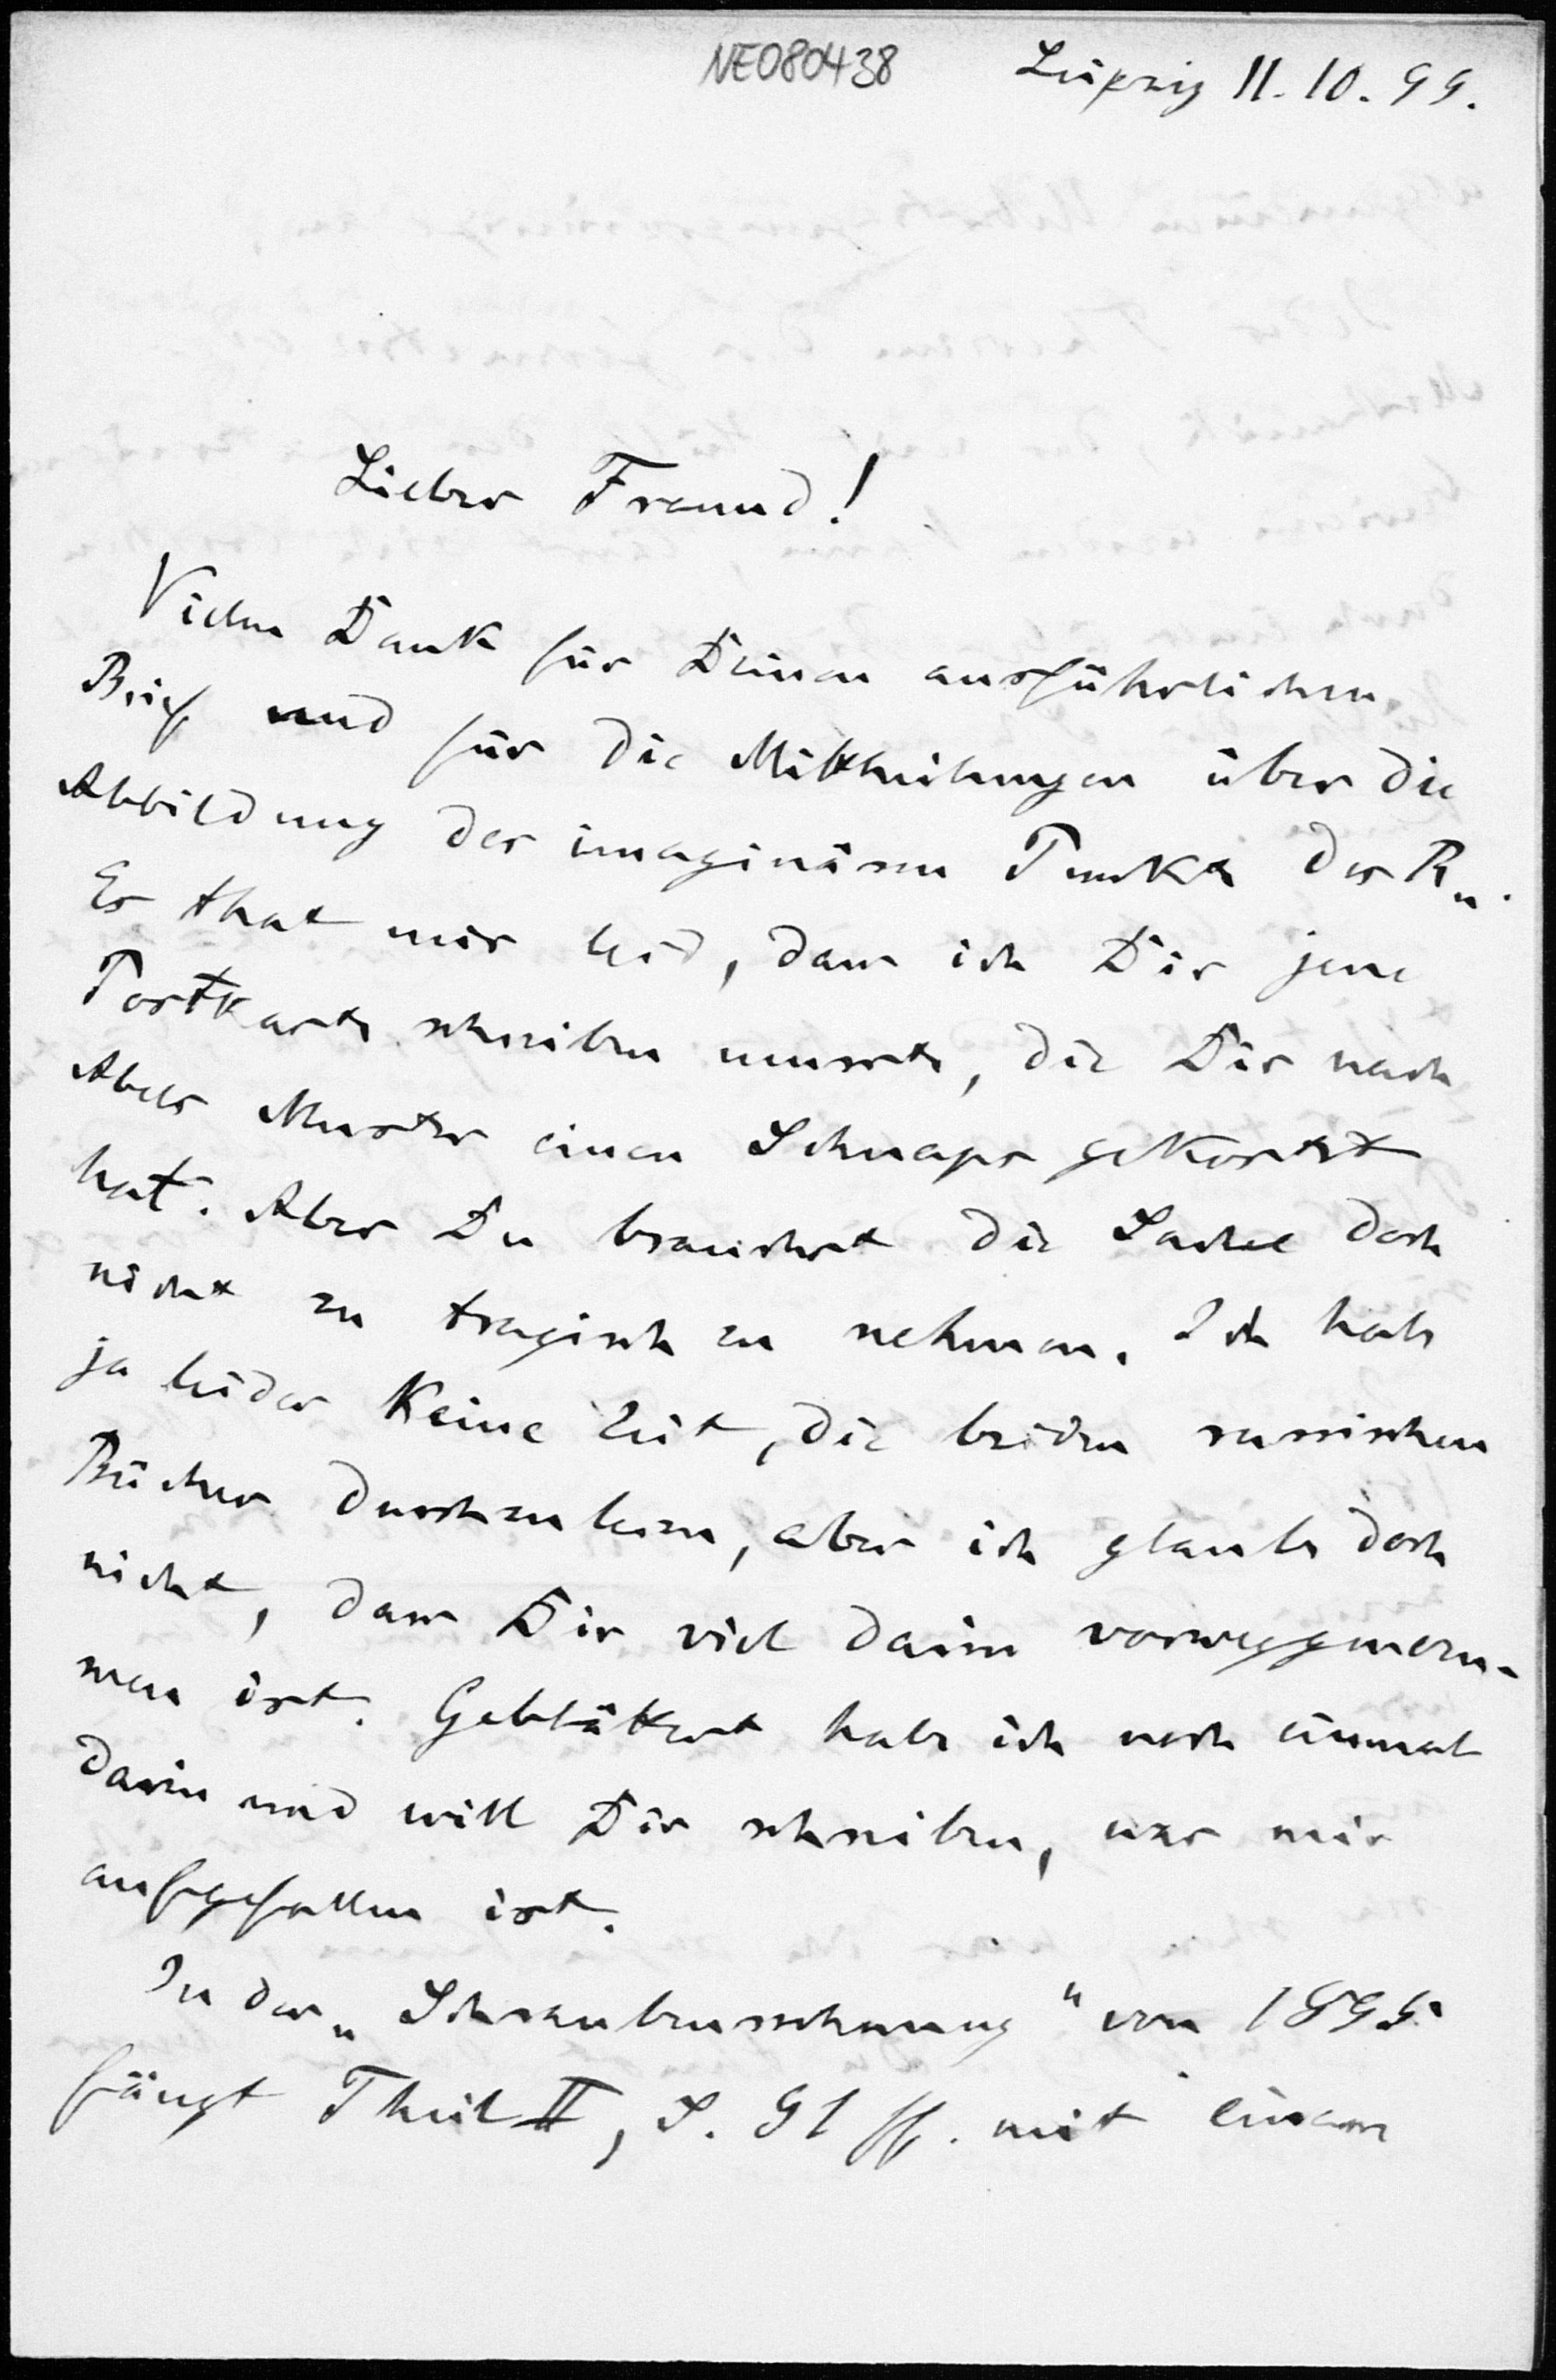 NE080438
Leipzig 11.10.99.
Lieber Freund!
Vielen Dank für Deinen ausführlichen
Brief und für die Mittheilungen über die
Abbildung der imaginären Punkte des Rn.
Es that mir leid, dass ich Dir jene
Postkarte schreiben musste, die Dir nach
Abels Muster einen Schnaps gekostet
hat. Aber Du brauchst die Sache doch
nicht zu tragisch zu nehmen. Ich habe
ja leider keine Zeit, die beiden russischen
Bücher durchzulesen, aber ich glaube doch
nicht, dass Dir viel darin vorweggenom-
men ist. Geblättert habe ich noch einmal
darin und will Dir schreiben, was mir
aufgefallen ist.
In der „Schraubenrechnung" von 1895
fängt Theil II, S. 91 ff. mit einem